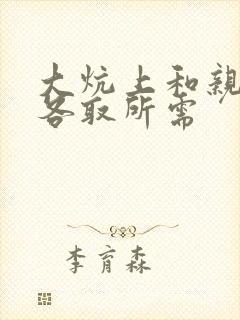 大炕上和親
各取所需
李育森